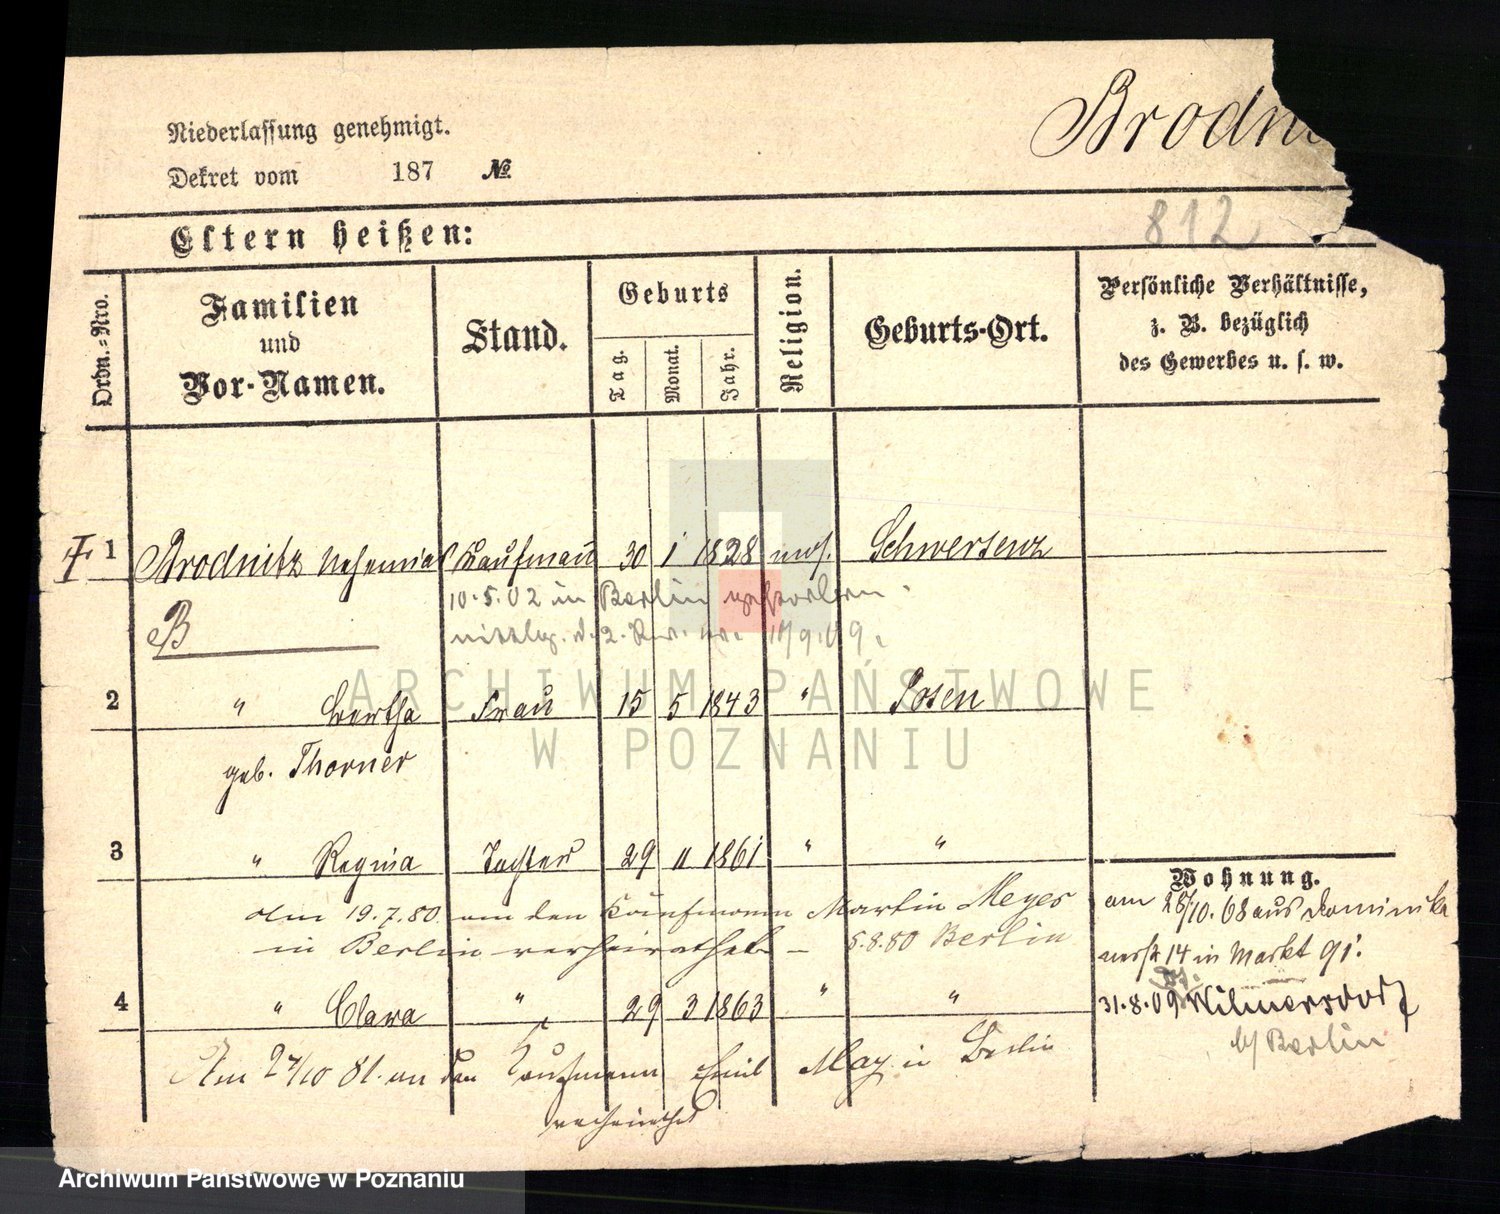 Brodni
Niederlassung genehmigt.
Dekret vom 187 №
812
Eltern heißen:
Ordn.-Nro.
Familien und Vor-Namen.
Stand.
Geburts
Tag.
Monat.
Jahr.
Religion.
Geburts-Ort.
Persönliche Verhältnisse,
z. B. bezüglich
des Gewerbes u. s. w.
1 Brodnitz Nehemias Kaufmann 30 1 1828 mos. Schwersenz
10.5.02 in Berlin gestorben.
B
2 " Bertha Frau 15 5 1843 " Posen
geb. Thorner
3 " Regina Tochter 29 11 1861 " "
Am 19.7.80 an den Kaufmann Martin Meyer
in Berlin verheirathet – 5.8.80 Berlin
4 " Clara " 29 3 1863 " "
Am 27/10 81 an den Kaufmann Emil May in Berlin
verheirathet
Wohnung.
am 28/10.68 aus Dominika
nerstr 14 in Markt 91.
31.8.09 Wilmersdorf
b/ Berlin
ARCHIWUM PAŃSTWOWE
W POZNANIU
Archiwum Państwowe w Poznaniu